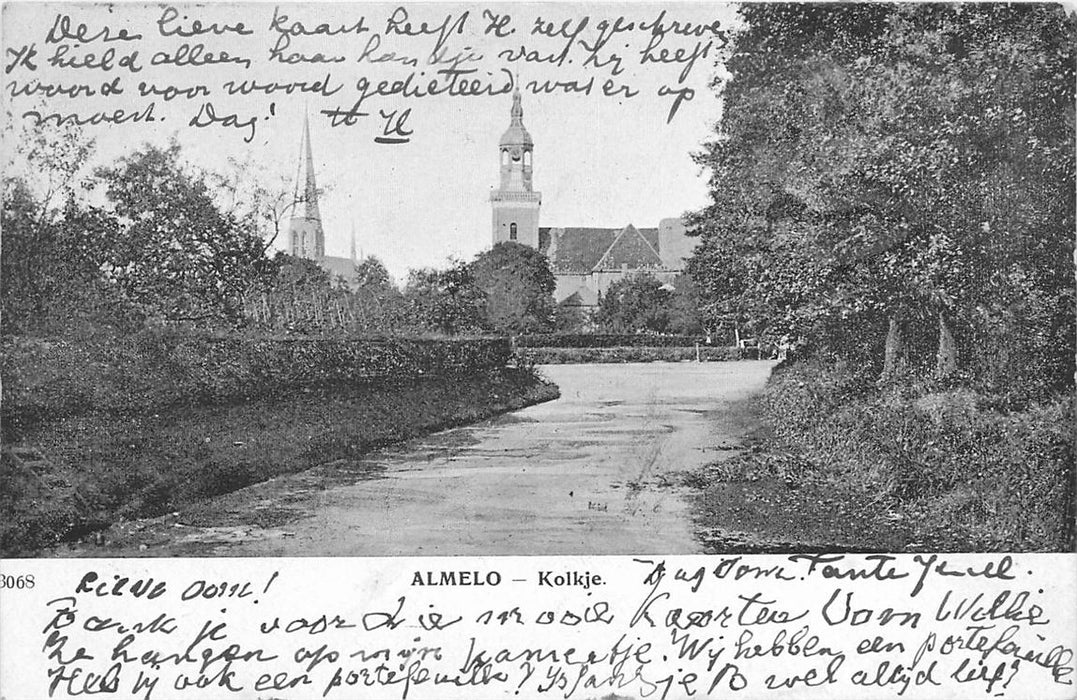 Deze lieve kaart heeft H. zelf geschreven
Ik hield alleen haar handje vast. Zij heeft
woord voor woord gedicteerd wat er op
moest. Dag! H
3068
ALMELO – Kolkje.
Lieve Oom!
Dag Oom. Tante Jell.
Bank je voor die mooie Kaarten Oom Willie
Ze hangen op mijn kamertje. Wij hebben een portefeuille
Heb jij ook een portefeuille? je B wel altijd lief?